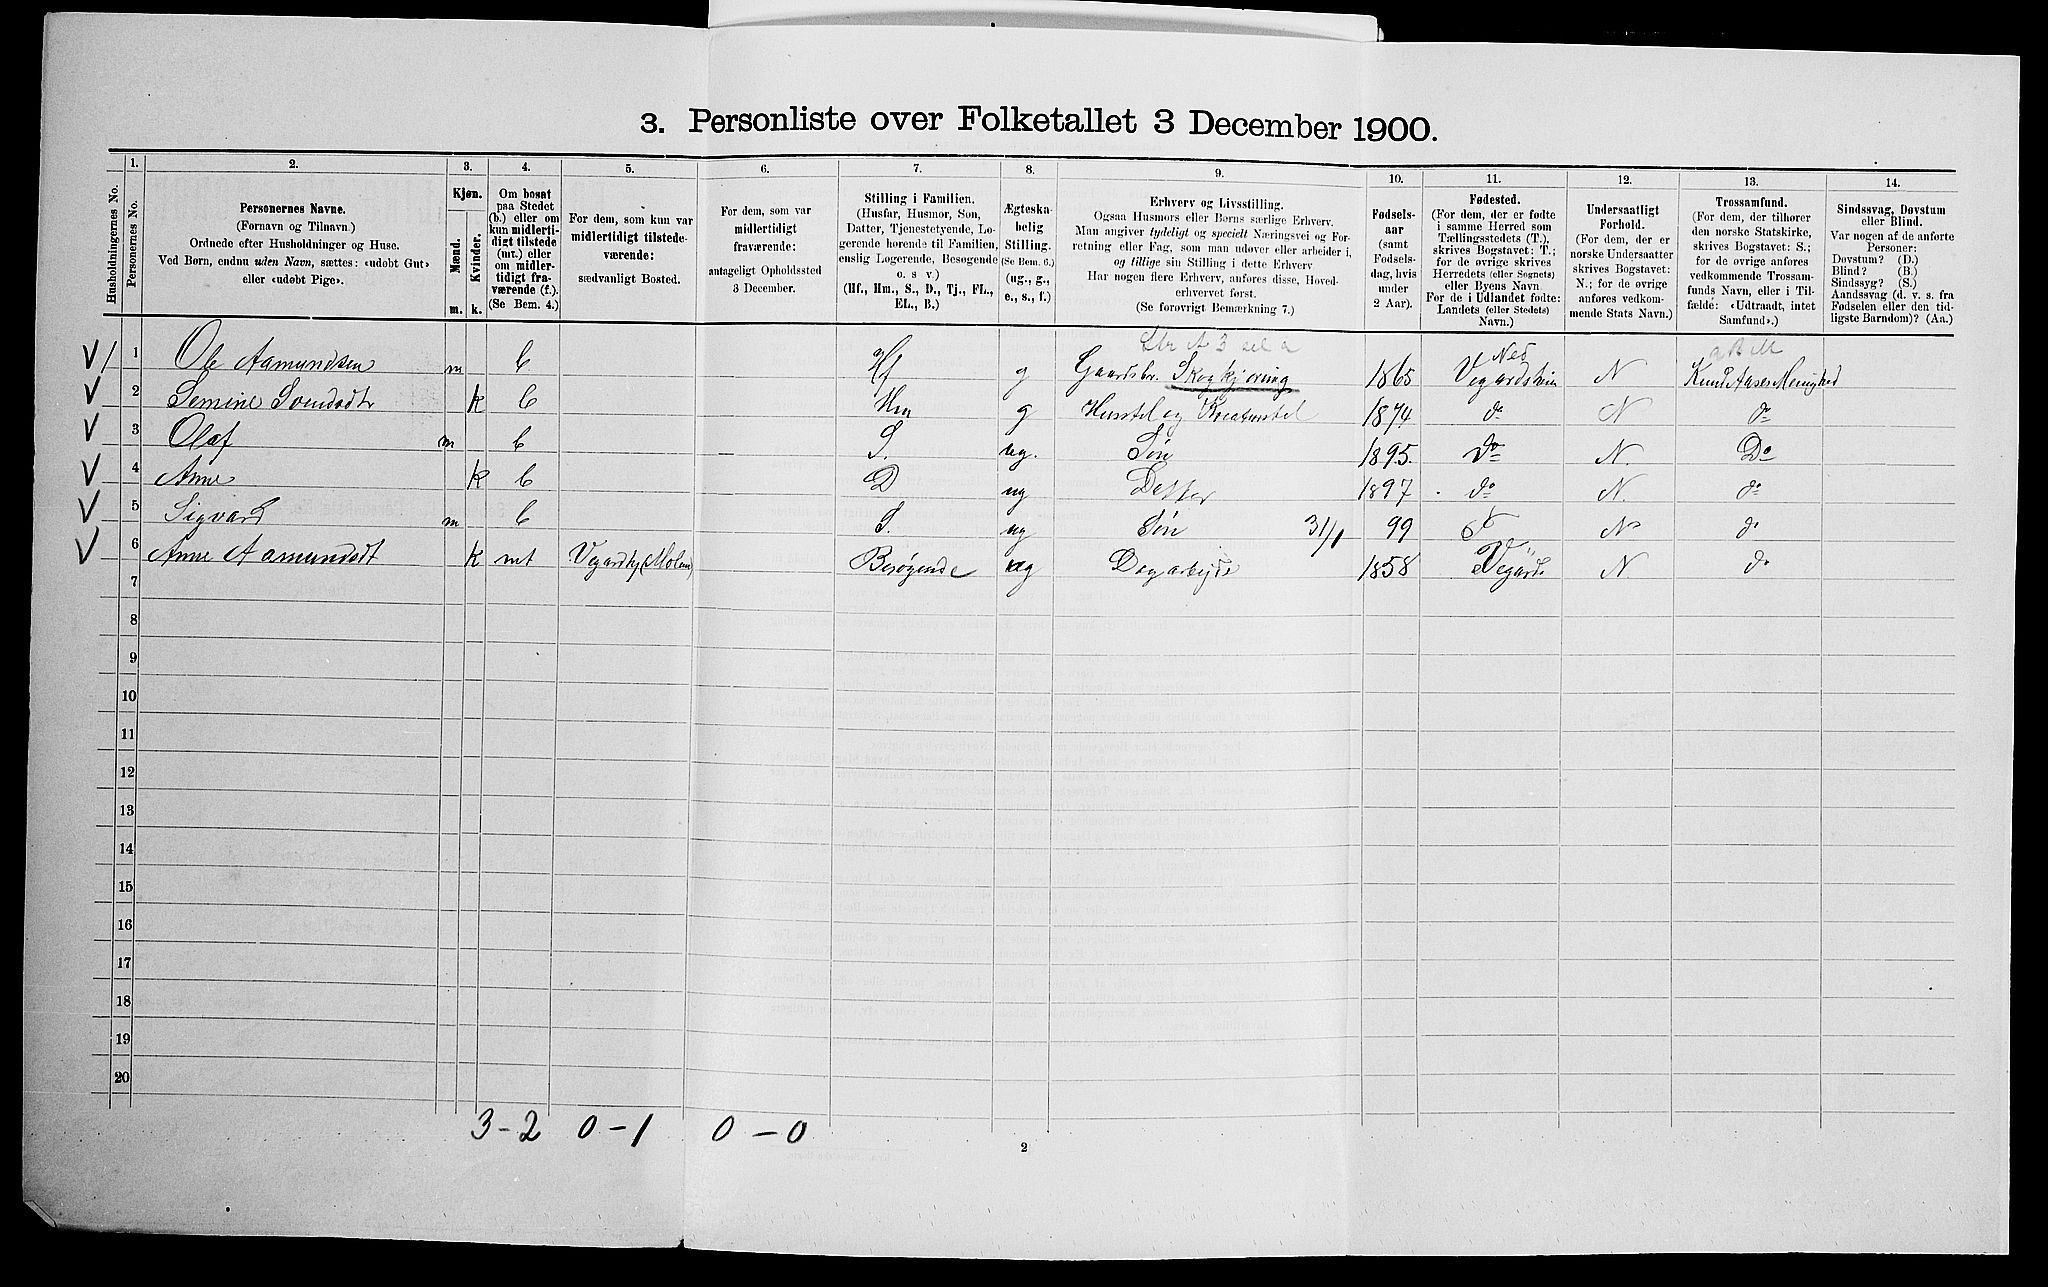 3. Personliste over Folketallet 3 December 1900.
Husholdningernes No.
1. Personernes No.
2. Personernes Navne.
(Fornavn og Tilnavn.)
Ordnede efter Husholdninger og Huse.
Ved Børn, endnu uden Navn, sættes: «udøbt Gut»
eller «udøbt Pige».
3. Kjøn.
Mænd. Kvinder.
m. k.
4. Om bosat
paa Stedet
(b.) eller om
kun midlerti-
digt tilstede
(mt.) eller
om midler-
tidigt fra-
værende (f.).
(Se Bem. 4.)
5. For dem, som kun var
midlertidigt tilstede-
værende:
sædvanligt Bosted.
6. For dem, som var
midlertidigt
fraværende:
antageligt Opholdssted
3 December.
7. Stilling i Familien.
(Husfar, Husmor, Søn,
Datter, Tjenestetyende, Lo-
gerende hørende til Familien,
enslig Logerende, Besøgende
o. s. v.)
(Hf., Hm., S., D., Tj., FL.,
EL., B.)
8. Ægteska-
belig
Stilling.
(Se Bem. 6.)
(ug., g.,
e., s., f.)
9. Erhverv og Livsstilling.
Ogsaa Husmors eller Børns særlige Erhverv.
Man angiver tydeligt og specielt Næringsvei og For-
retning eller Fag, som man udøver eller arbeider i,
og tillige sin Stilling i dette Erhverv
Har nogen flere Erhverv, anføres disse, Hoved-
erhvervet først.
(Se forøvrigt Bemærkning 7.)
10. Fødsels-
aar
(samt
Fødsels-
dag, hvis
under
2 Aar).
11. Fødested.
(For dem, der er fødte
i samme Herred som
Tællingsstedets (T.),
skrives Bogstavet: T.;
for de øvrige skrives
Herredets (eller Sognets)
eller Byens Navn.
For de i Udlandet fødte:
Landets (eller Stedets)
Navn.)
12. Undersaatligt
Forhold.
(For dem, der er
norske Undersaatter
skrives Bogstavet:
N.; for de øvrige
anføres vedkom-
mende Stats Navn.)
13. Trossamfund.
(For dem, der tilhører
den norske Statskirke,
skrives Bogstavet: S.;
for de øvrige anføres
vedkommende Trossam-
funds Navn, eller i Til-
fælde: «Udtraadt, intet
Samfund».)
14. Sindssvag, Døvstum
eller Blind.
Var nogen af de anførte
Personer:
Døvstum? (D.)
Blind? (B.)
Sindssyg? (S.)
Aandssvag (d. v. s. fra
Fødselen eller den tid-
ligste Barndom)? (Aa.)
1 Ole Aamundsen m b Hf g Gaardsbr. Skogkjøring 1865 N
2 k b Hm g Husstel og Kreaturstel 1874 do N do
3 Olaf m b S. ug. Søn 1895. Do N. Do
4 Anne k b D ug Datter 1897 do N. do
5 Sigvard m b S. ug Søn 31/1 99 N do
6 Anne Aamundsdt k mt Besøgende ug 1858 N do
7
8
9
10
11
12
13
14
15
16
17
18
19
20
3-2 0-1 0-0
2